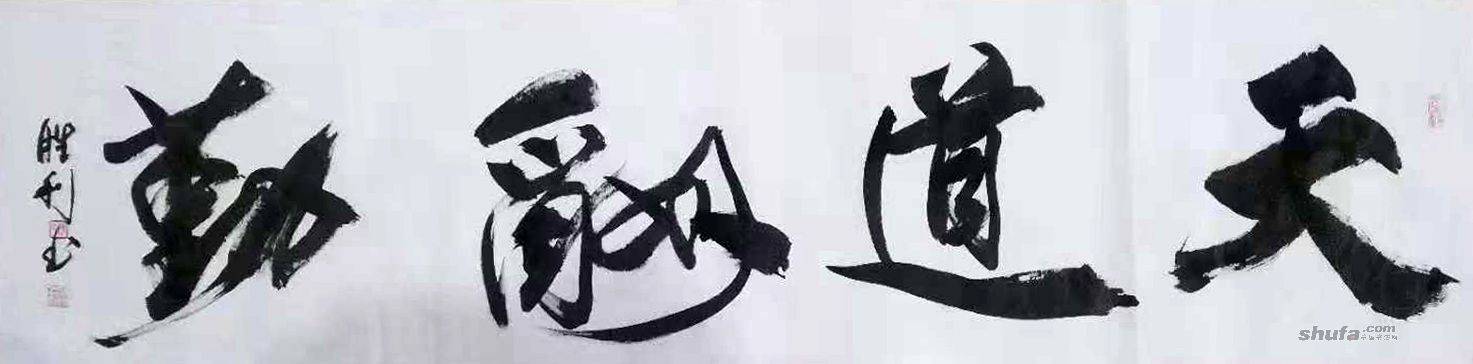 天道酬勤
胜利书
shufa.com